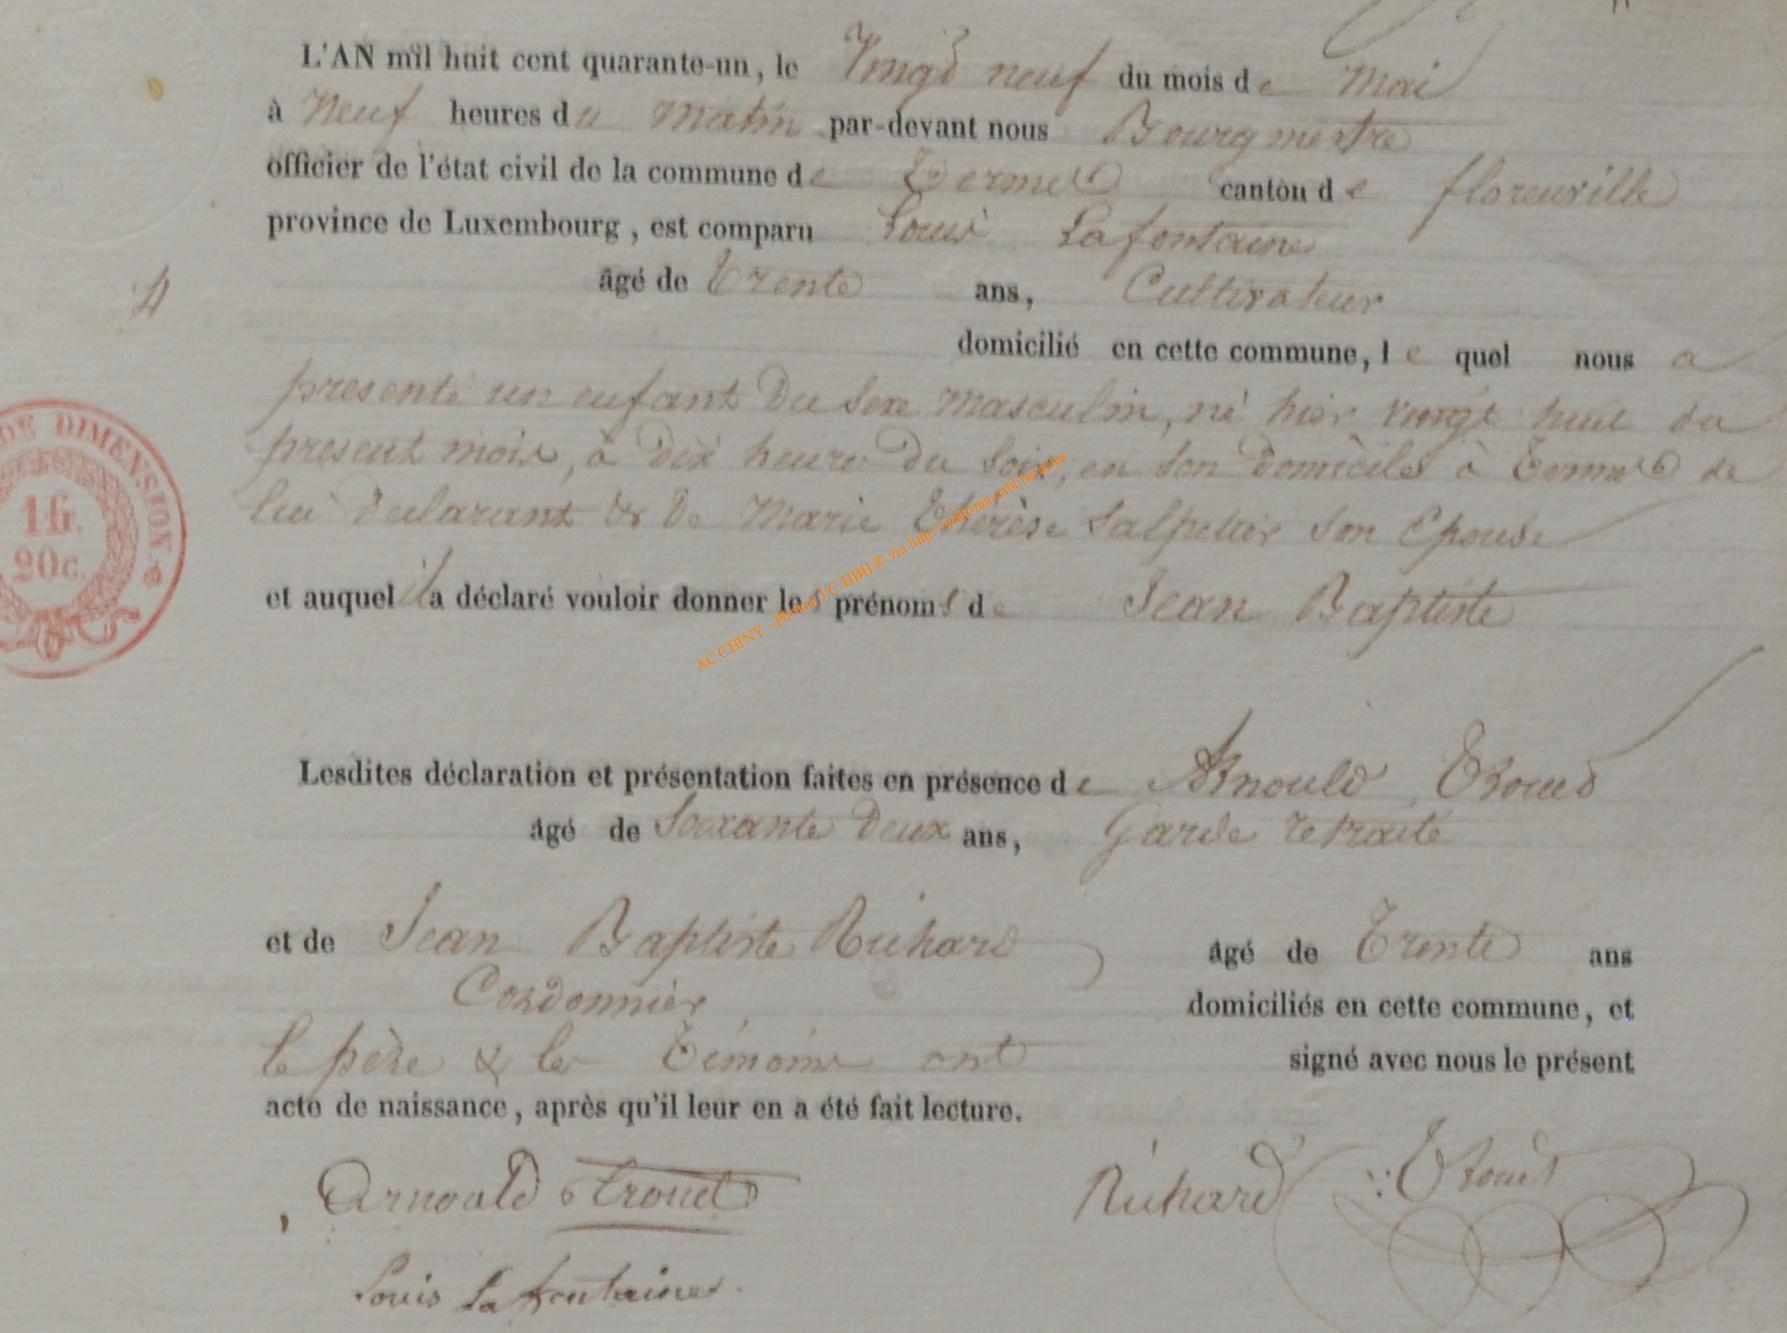 L'AN mil huit cent quarante-un, le Vingt neuf du mois de Mai
à Neuf heures du Matin par-devant nous Bourgmestre
officier de l'état civil de la commune de Termes canton de florenville
province de Luxembourg, est comparu Louis Lafontaine
âgé de Trente ans, Cultivateur
4
domicilié en cette commune, lequel nous a
présenté un enfant Du Sexe masculin, né hier vingt huit du
présent mois, à Dix heures Du Soir, en Son Domicile à Termes de
lui Déclarant & De Marie Thérèse Salpetier Son Epouse
et auquel il a déclaré vouloir donner les prénoms de Jean Baptiste
DE DIMENSION
1 fr.
20 c.
AC CHINY - Photos J.C HBH ® via http://wallonia.asbl.be/actes
Lesdites déclaration et présentation faites en présence de Arnould Troued
âgé de Soixante Deux ans, Garde retraité
et de Jean Baptiste Richard âgé de Trente ans
Cordonnier domiciliés en cette commune, et
le père & les Témoins ont signé avec nous le présent
acte de naissance, après qu'il leur en a été fait lecture.
Arnould Troued Richard
Louis Lafontaine